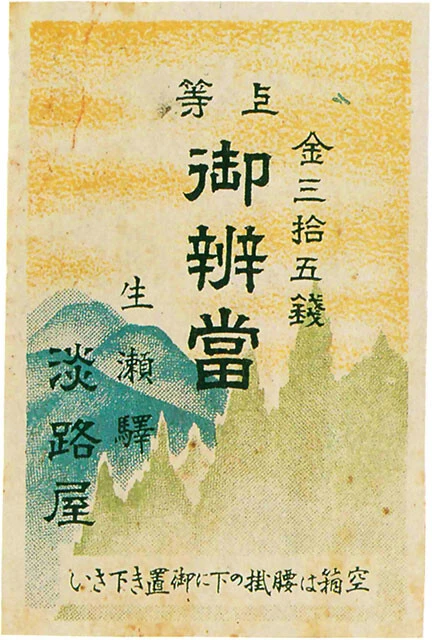 上等
金三拾五錢
御辨當
生瀬驛
淡路屋
空箱は腰掛の下に御置き下さい